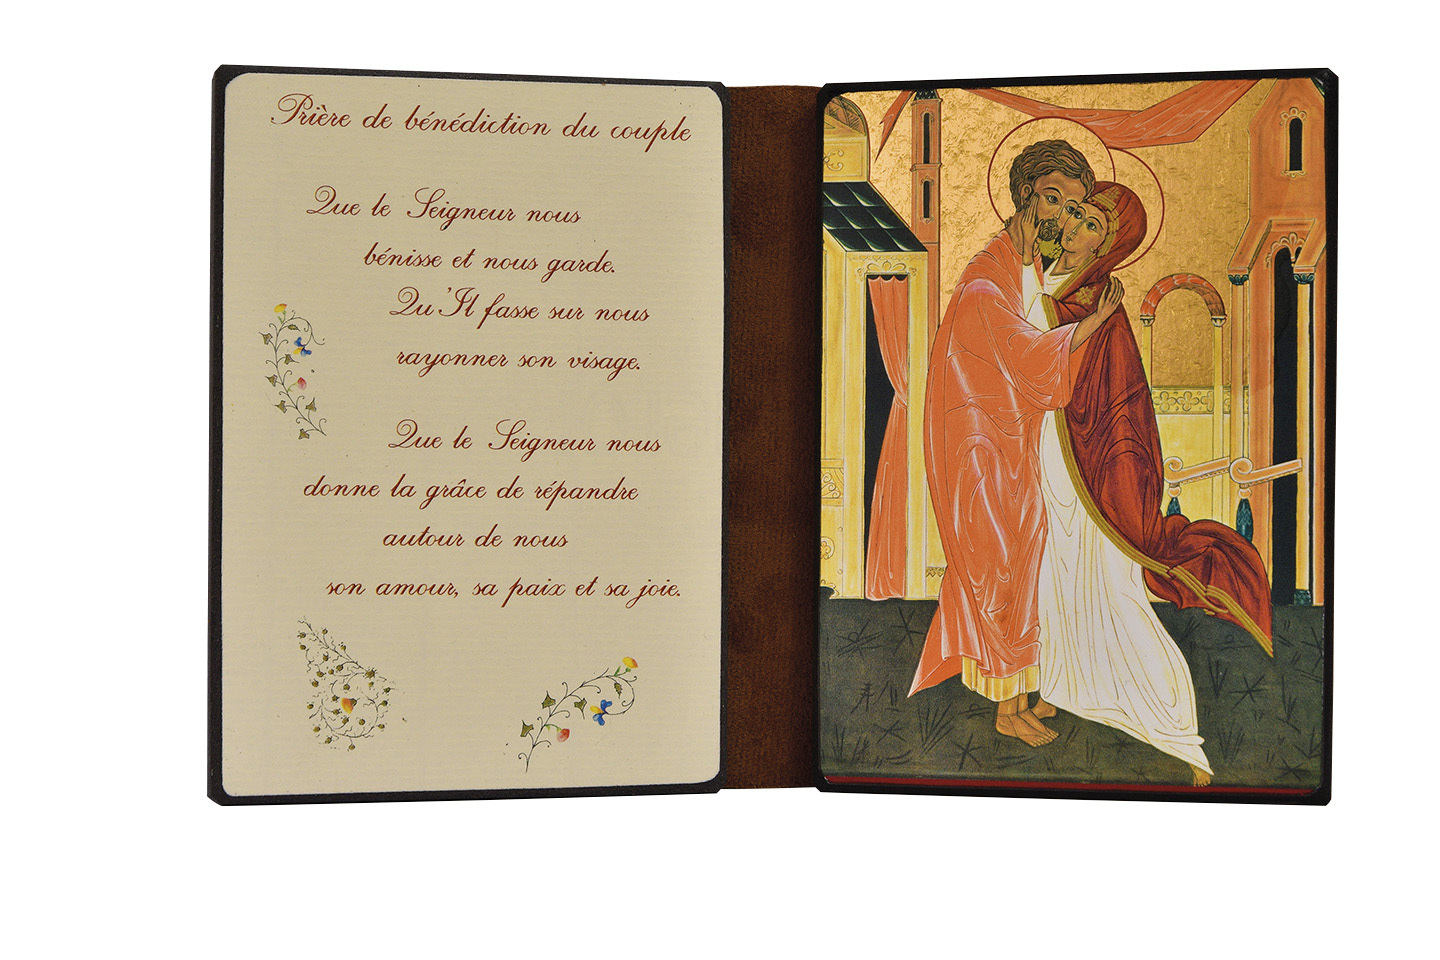 Prière de bénédiction du couple
Que le Seigneur nous
bénisse et nous garde.
Qu'Il fasse sur nous
rayonner son visage.
Que le Seigneur nous
donne la grâce de répandre
autour de nous
son amour, sa paix et sa joie.